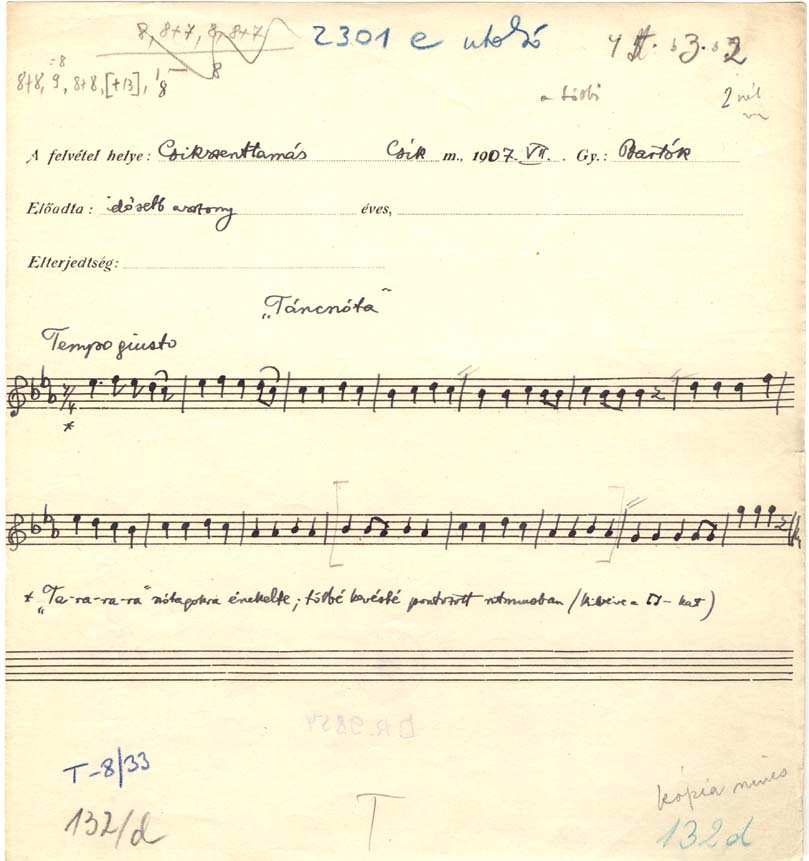 8, 8+7, 8, 8+7
2301 e utolsó
8
=8
8+8, 9, 8+8, [+13],
8
a többi
2 nél
A felvétel helye: Csikszenttamás Csík m., 1907. VII. Gy.: Bartók
Előadta: idősebb asszony éves,
Elterjedtség:
„Táncnóta”
Tempo giusto
*
* „Ta-ra-ra-ra” szótagokra énekelte; többé kevésbé pontozott ritmusban (kivéve a -kat)
D.R. 9857
T-8/33
132/d
T
kópia nincs
132d